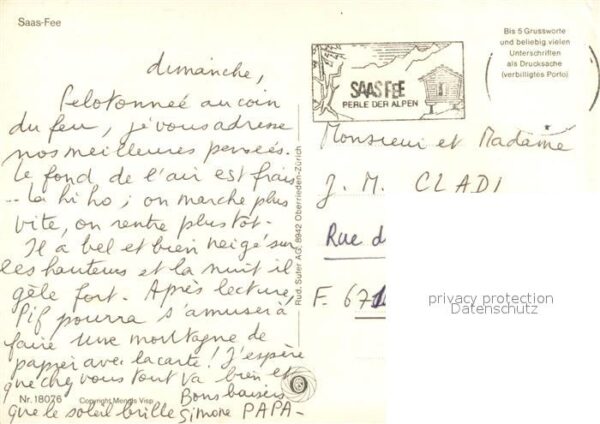 Saas-Fee
dimanche,
Pelotonnée au coin
du feu, je vous adresse
nos meilleures pensées.
Le fond de l'air est frais
... la hi ho; on marche plus
vite, on rentre plus tôt.
Il a bel et bien neigé sur
les hauteurs et la nuit il
gèle fort. Après lecture,
Pif pourra s'amuser à
faire une montagne de
papier avec la carte! J'espère
que chez vous tout va bien et
Bons baisers
que le soleil brille Simone PAPA-
Nr. 18076 Copyright Mengis Visp
Rud. Suter AG, 8942 Oberrieden-Zürich
SAAS FEE
PERLE DER ALPEN
Bis 5 Grussworte
und beliebig vielen
Unterschriften
als Drucksache
(verbilligtes Porto)
Monsieur et Madame
J. M. CLADI
Rue d
F. 67
privacy protection
Datenschutz